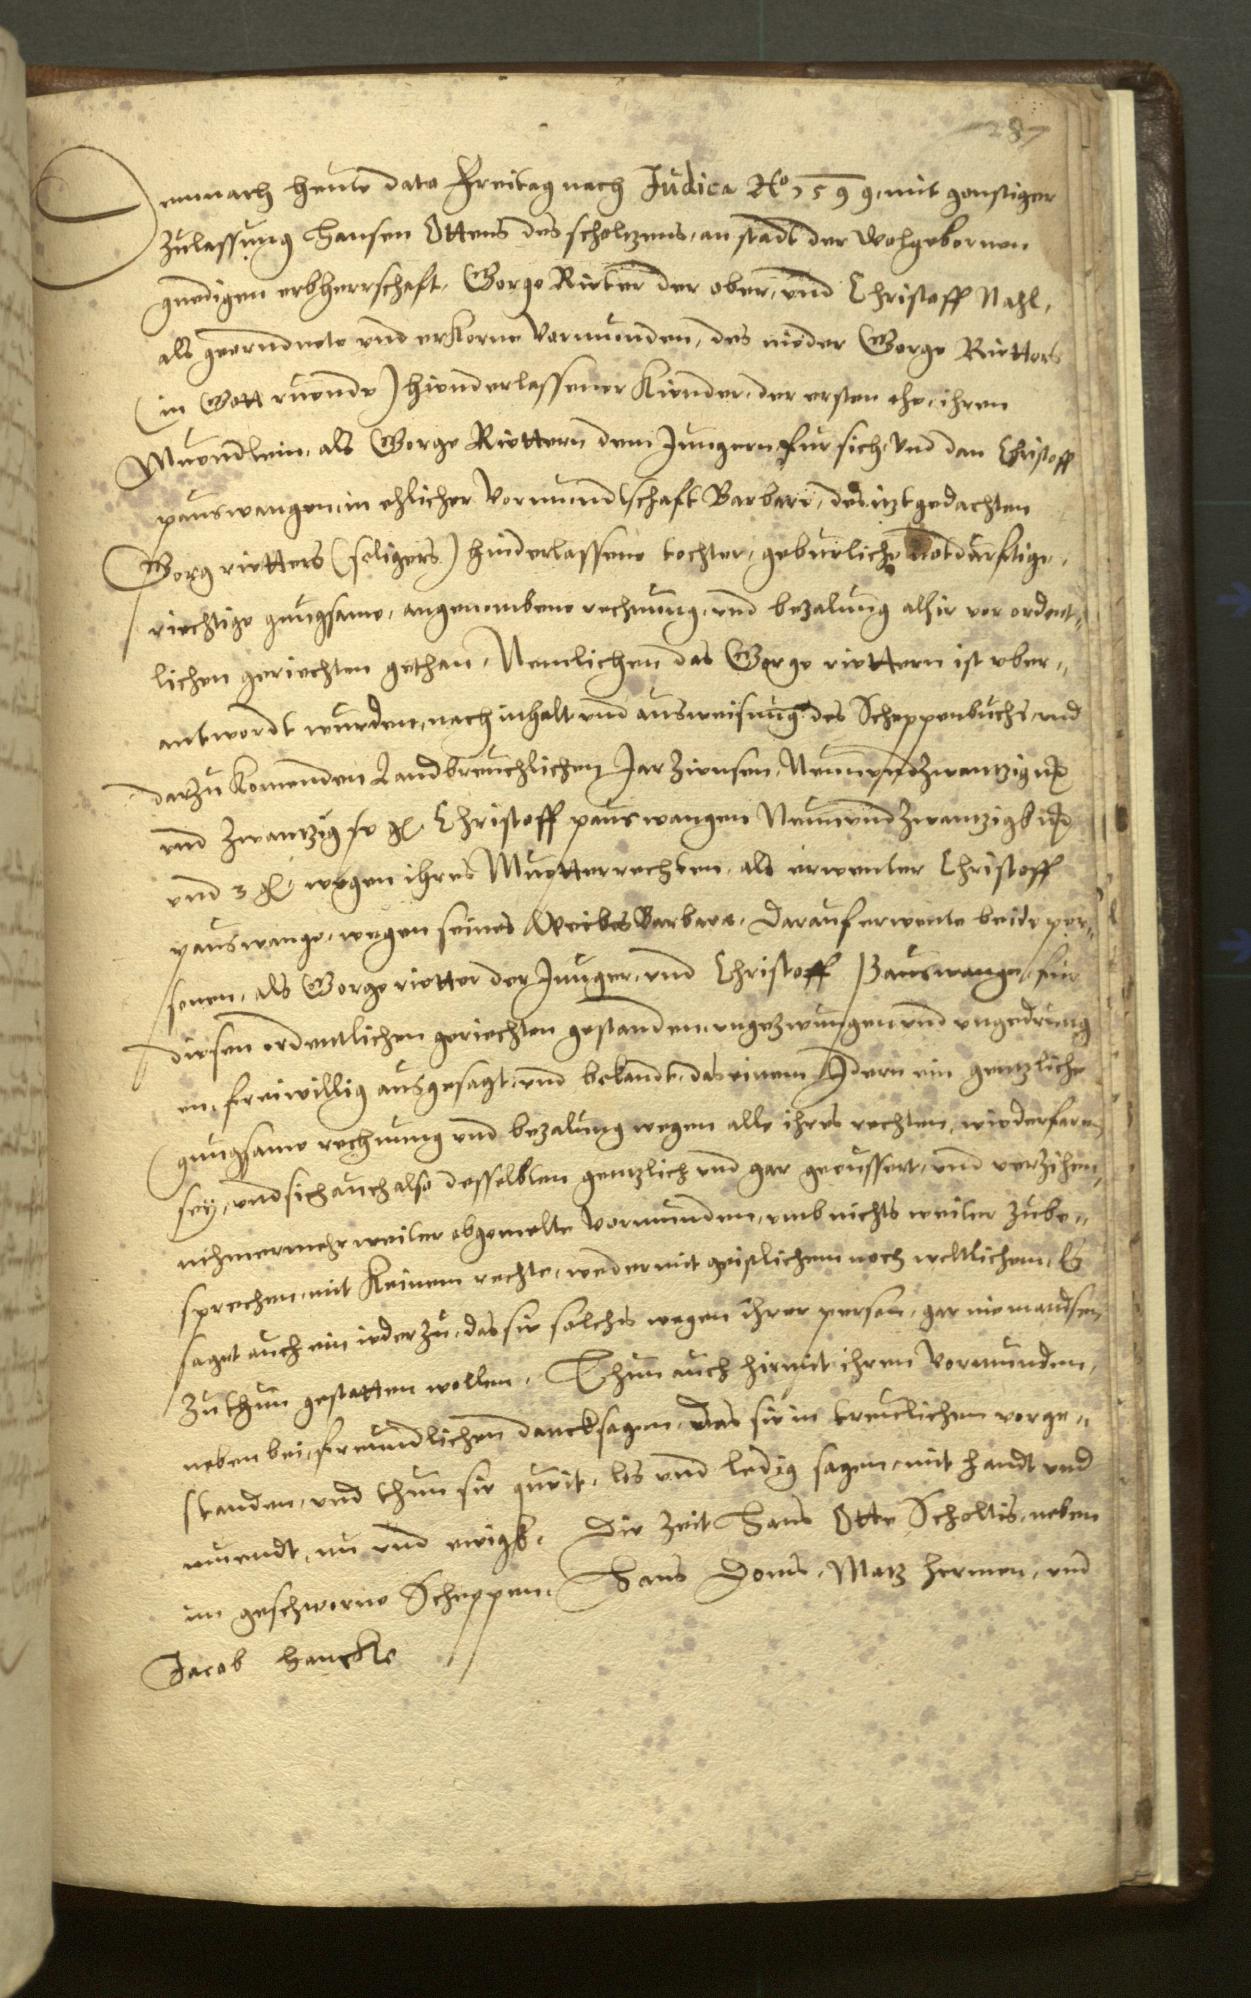 287
Demnach heute dato Freitag nach Judica Ao 1599, mit gonstiger
zulassung Hansen Ottens des scholtzens, an stadt der Wolgebornen
gnedigen erbherrschaft, Gorge Ritter der ober, und Christoff Nahl,
als geordnete und erkorne Vormunden, des nieder Gorge Rietters
(in Gott ruende) hienderlassener Kiender, der ersten ehe, ihren
Muendlein, als Gorge Riettern dem Jungern fur sich, Und dan Christoff
pauswangen, in ehlicher Vormundtschaft Barbara, des itztgedachten
Georg rietters (seligers) hinderlassene tochter, geburliche notdurftige,
riechtige gnugsame, angenombene rechnung, und bezalung alhir vor ordent„
lichen geriechten gethan, Nemlichen das Gorge riettern ist uber„
antwordt wurden, nach inhalt und ausweisung des Scheppenbuchs, und
darzu komenden Landbreuchlichen Jar Ziensen, Neunundzwantzig
und zwantzig Christoff pauswangen Neunundzwantzigk
und 3 gl, wegen ihres Muetterrechten, als erwenter Christoff
pauswange, wegen seines Weibes Barbara. Darauf erwente beide per„
sonen, als Gorge rietter der Junger, und Christoff Pauswange, fur
diesen ordentlichen geriechten gestanden, ungezwungen und ungedrung
en, freiwillig ausgesagt, und bekandt, das einem Idern ein gentzliche
gnugsame rechnung und bezalung wegen alle ihres rechten, wiederfaren
sey, und sich auch also desselbten gentzlich und gar geeussert, und verzihen,
nihmermehr weiter obgemelte Vormunden, umb nichts weiter zube„
sprechen, mit keinem rechte, weder mit geistlichem noch weltlichem, Es
saget auch ein ieder zu, das sie solchs wegen ihrer person, gar niemandsen
zuthun gestatten wollen. Thun auch hirmit ihren Vormunden,
neben bei, freundlichen dancksagen, Das sie in treulichen vorge„
standen, und thun sie queit, los und ledig sagen, mit handt und
muendt, nu und ewigk. Die Zeit Hans Otte Scholtis, neben
im geschworne Scheppen. Hans Doms, Matz Hermen, und
Jacob Hancke